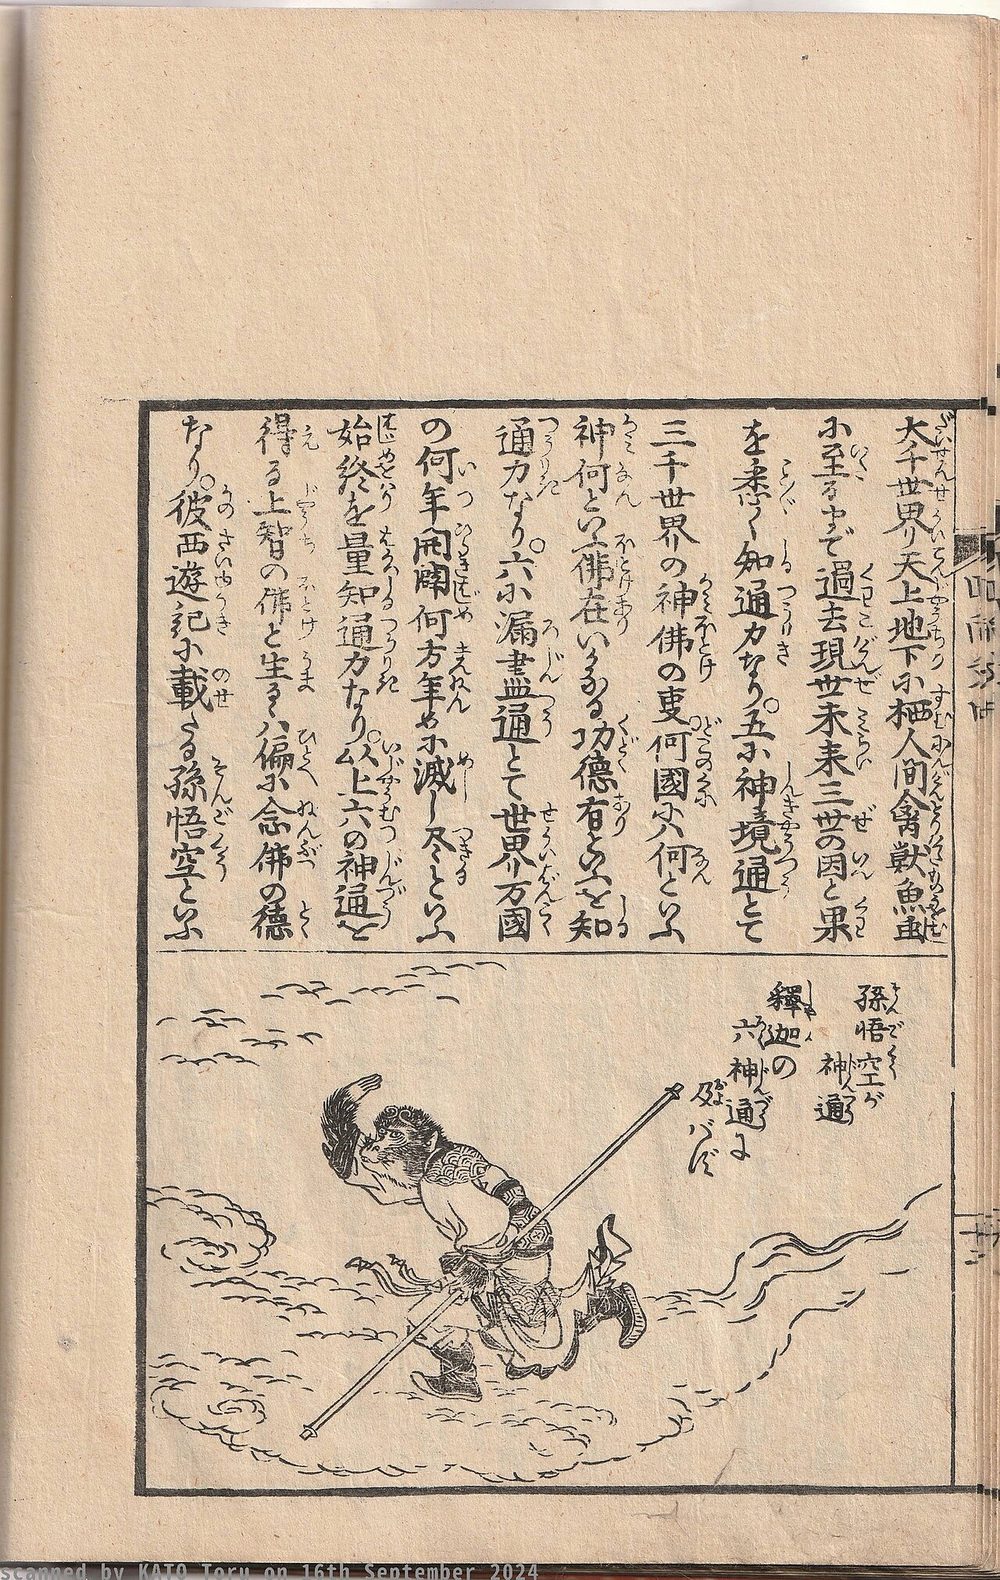 大千世界天上地下に栖人間禽獣魚虫
に至るまで過去現世未来三世の因と果
を悉く知通力なり。五に神境通とて
三千世界の神佛の叓何國には何といふ
神何といふ佛在いかなる功徳有といふを知
通力なり。六に漏盡通とて世界万國
の何年開闢何万年めに滅し尽るといふ
始終を量知通力なり。以上六の神通を
得る上智の佛と生るゝは偏に念佛の徳
なり。彼西遊記に載たる孫悟空といふ
孫悟空が
神通
釋迦の
六神通に
及バず
scanned by KATO Toru on 16th September 2024